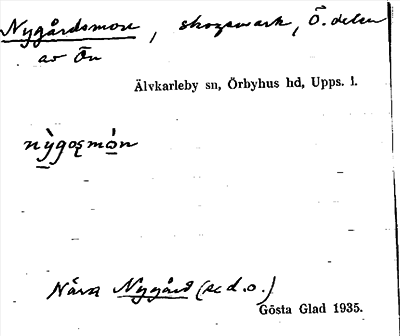 Nygårdsmon, skogsmark, Ö. delen
av Ön
Älvkarleby sn, Örbyhus hd, Upps. l.
nỳgo̧smón
Nära Nygård (se d. o.)
Gösta Glad 1935.